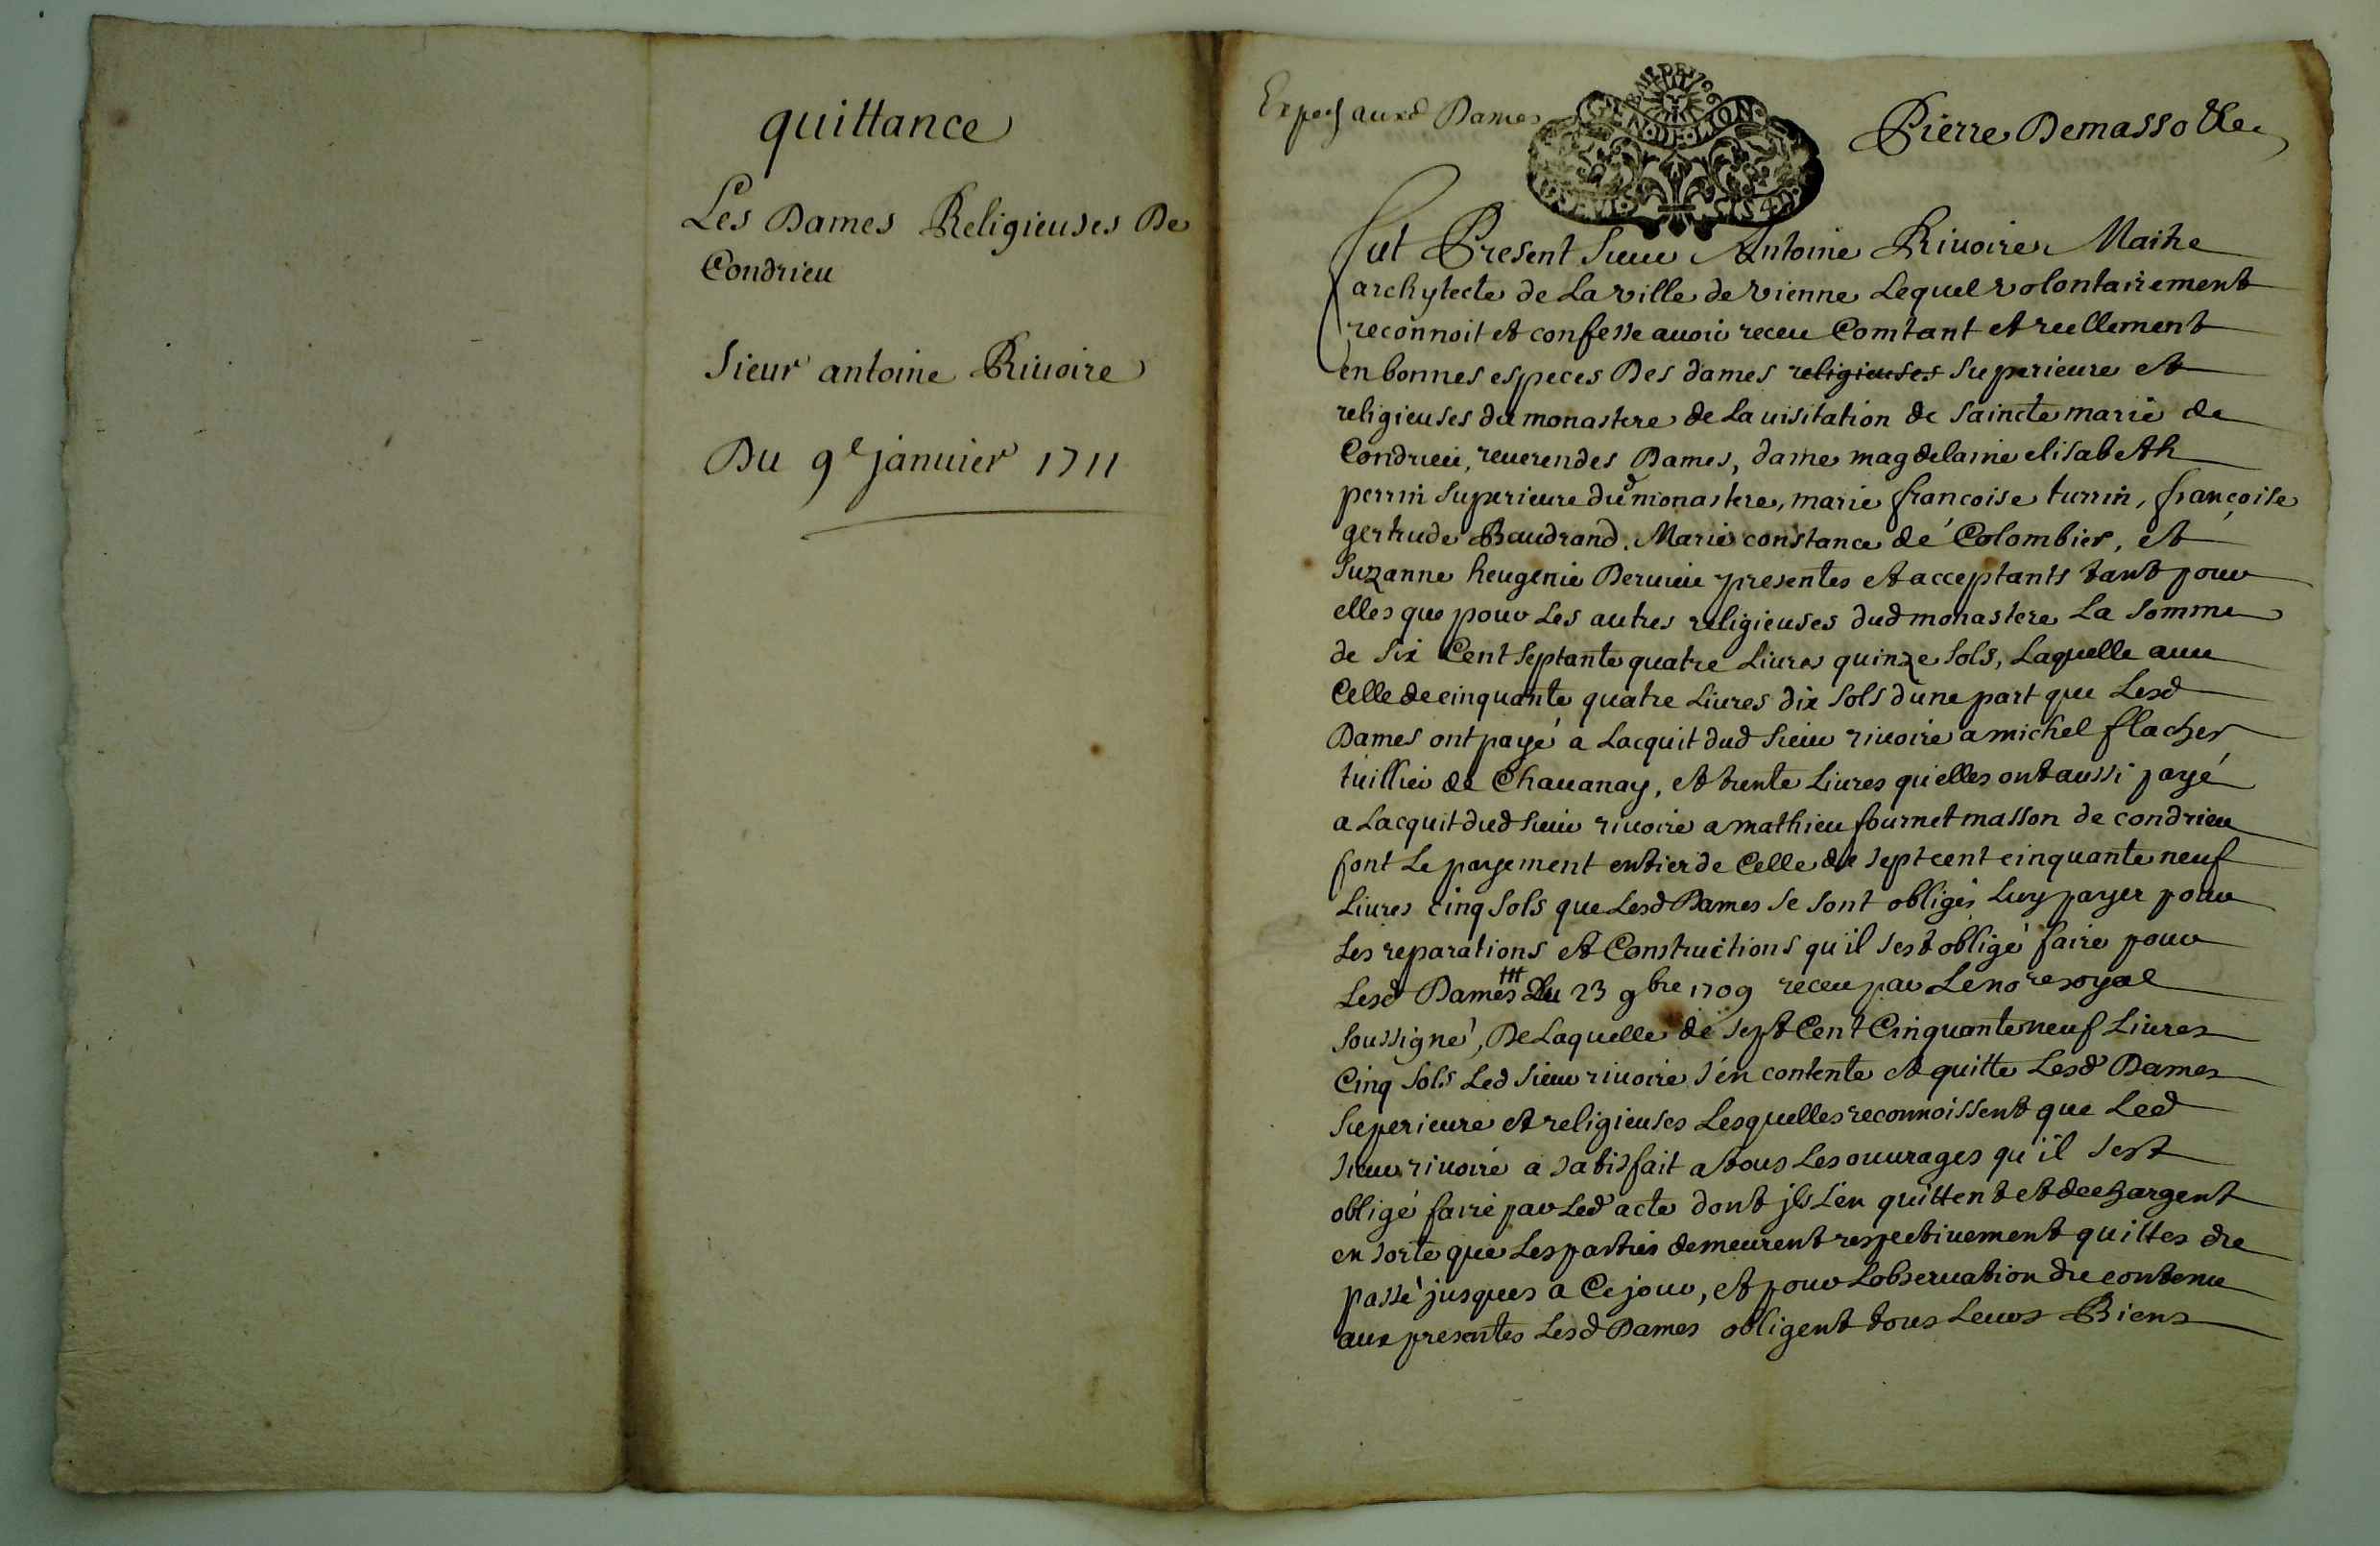 quittance
Les Dames Religieuses De
Condrieu
Sieur antoine Riuoire
Du 9e januier 1711
auxd Dames
GEN·DE·LYON
Pierre Demasso
fut Present Sieur Antoine Riuoire Maitre
archytecte de La ville de vienne Lequel volontairement
reconnoit et confesse auoir receu Comtant et reellement
en bonnes especes Des dames religieuses Superieure et
religieuses du monastere de La uisitation de Saincte marie de
Condrieu, reuerendes Dames, dame magdelaine elisabeth
perrin Superieure dud monastere, marie francoise turrin, françoise
gertrude Baudrand. Marie constance de Colombier, et
Suzanne heugenie Deruieu presentes et acceptants tant pour
elles que pour Les autres religieuses dud monastere La Somme
de Six Cent Septante quatre Liures quinze Sols, Laquelle auec
Celle de cinquante quatre Liures dix Sols dune part que Lesd
Dames ont payé a Lacquit dud Sieur riuoire a michel flacher
tuillier de Chauanay, et trente Liures qu'elles ont aussi payé
a Lacquit dud Sieur riuoire a mathieu fournet masson de condrieu
font Le payement entier de Celle de Sept cent cinquante neuf
Liures cinq Sols que Lesd Dames Se Sont obligés Luy payer pour
Les reparations et Constructions qu'il Sest obligé faire pour
Lesd Dames Du 23 9bre 1709 receu par Le nore royal
Soussigné, De Laquelle de Sept Cent Cinquante neuf Liures
Cinq Sols Led Sieur riuoire S'en contente et quitte Lesd Dames
Superieure et religieuses Lesquelles reconnoissent que Led
Sieur riuoire a Satisfait a tous Les ouurages qu'il Sest
obligé faire par Led acte dont jls L'en quittent et dechargent
en Sorte que Les parties demeurent respectiuement quittes du
passé jusques a Ce jour, et pour Lobseruation du contenu
aux presentes Lesd Dames obligent tous Leurs Biens